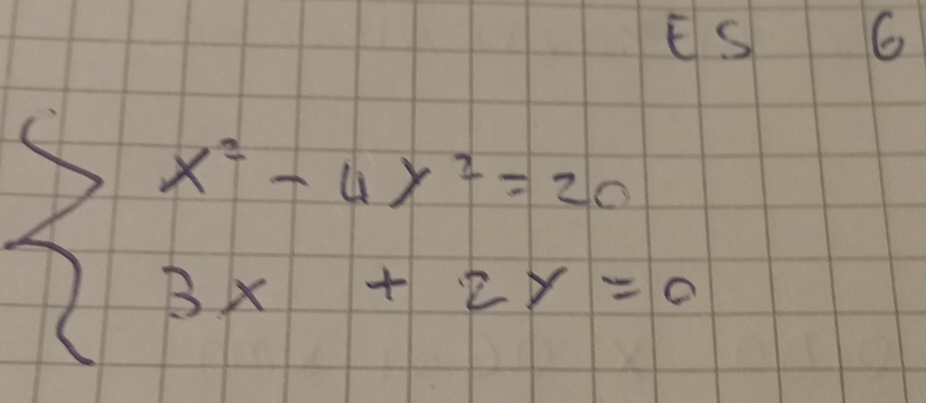 ES 6
x² - 4y² = 20
3x + 2y = 0